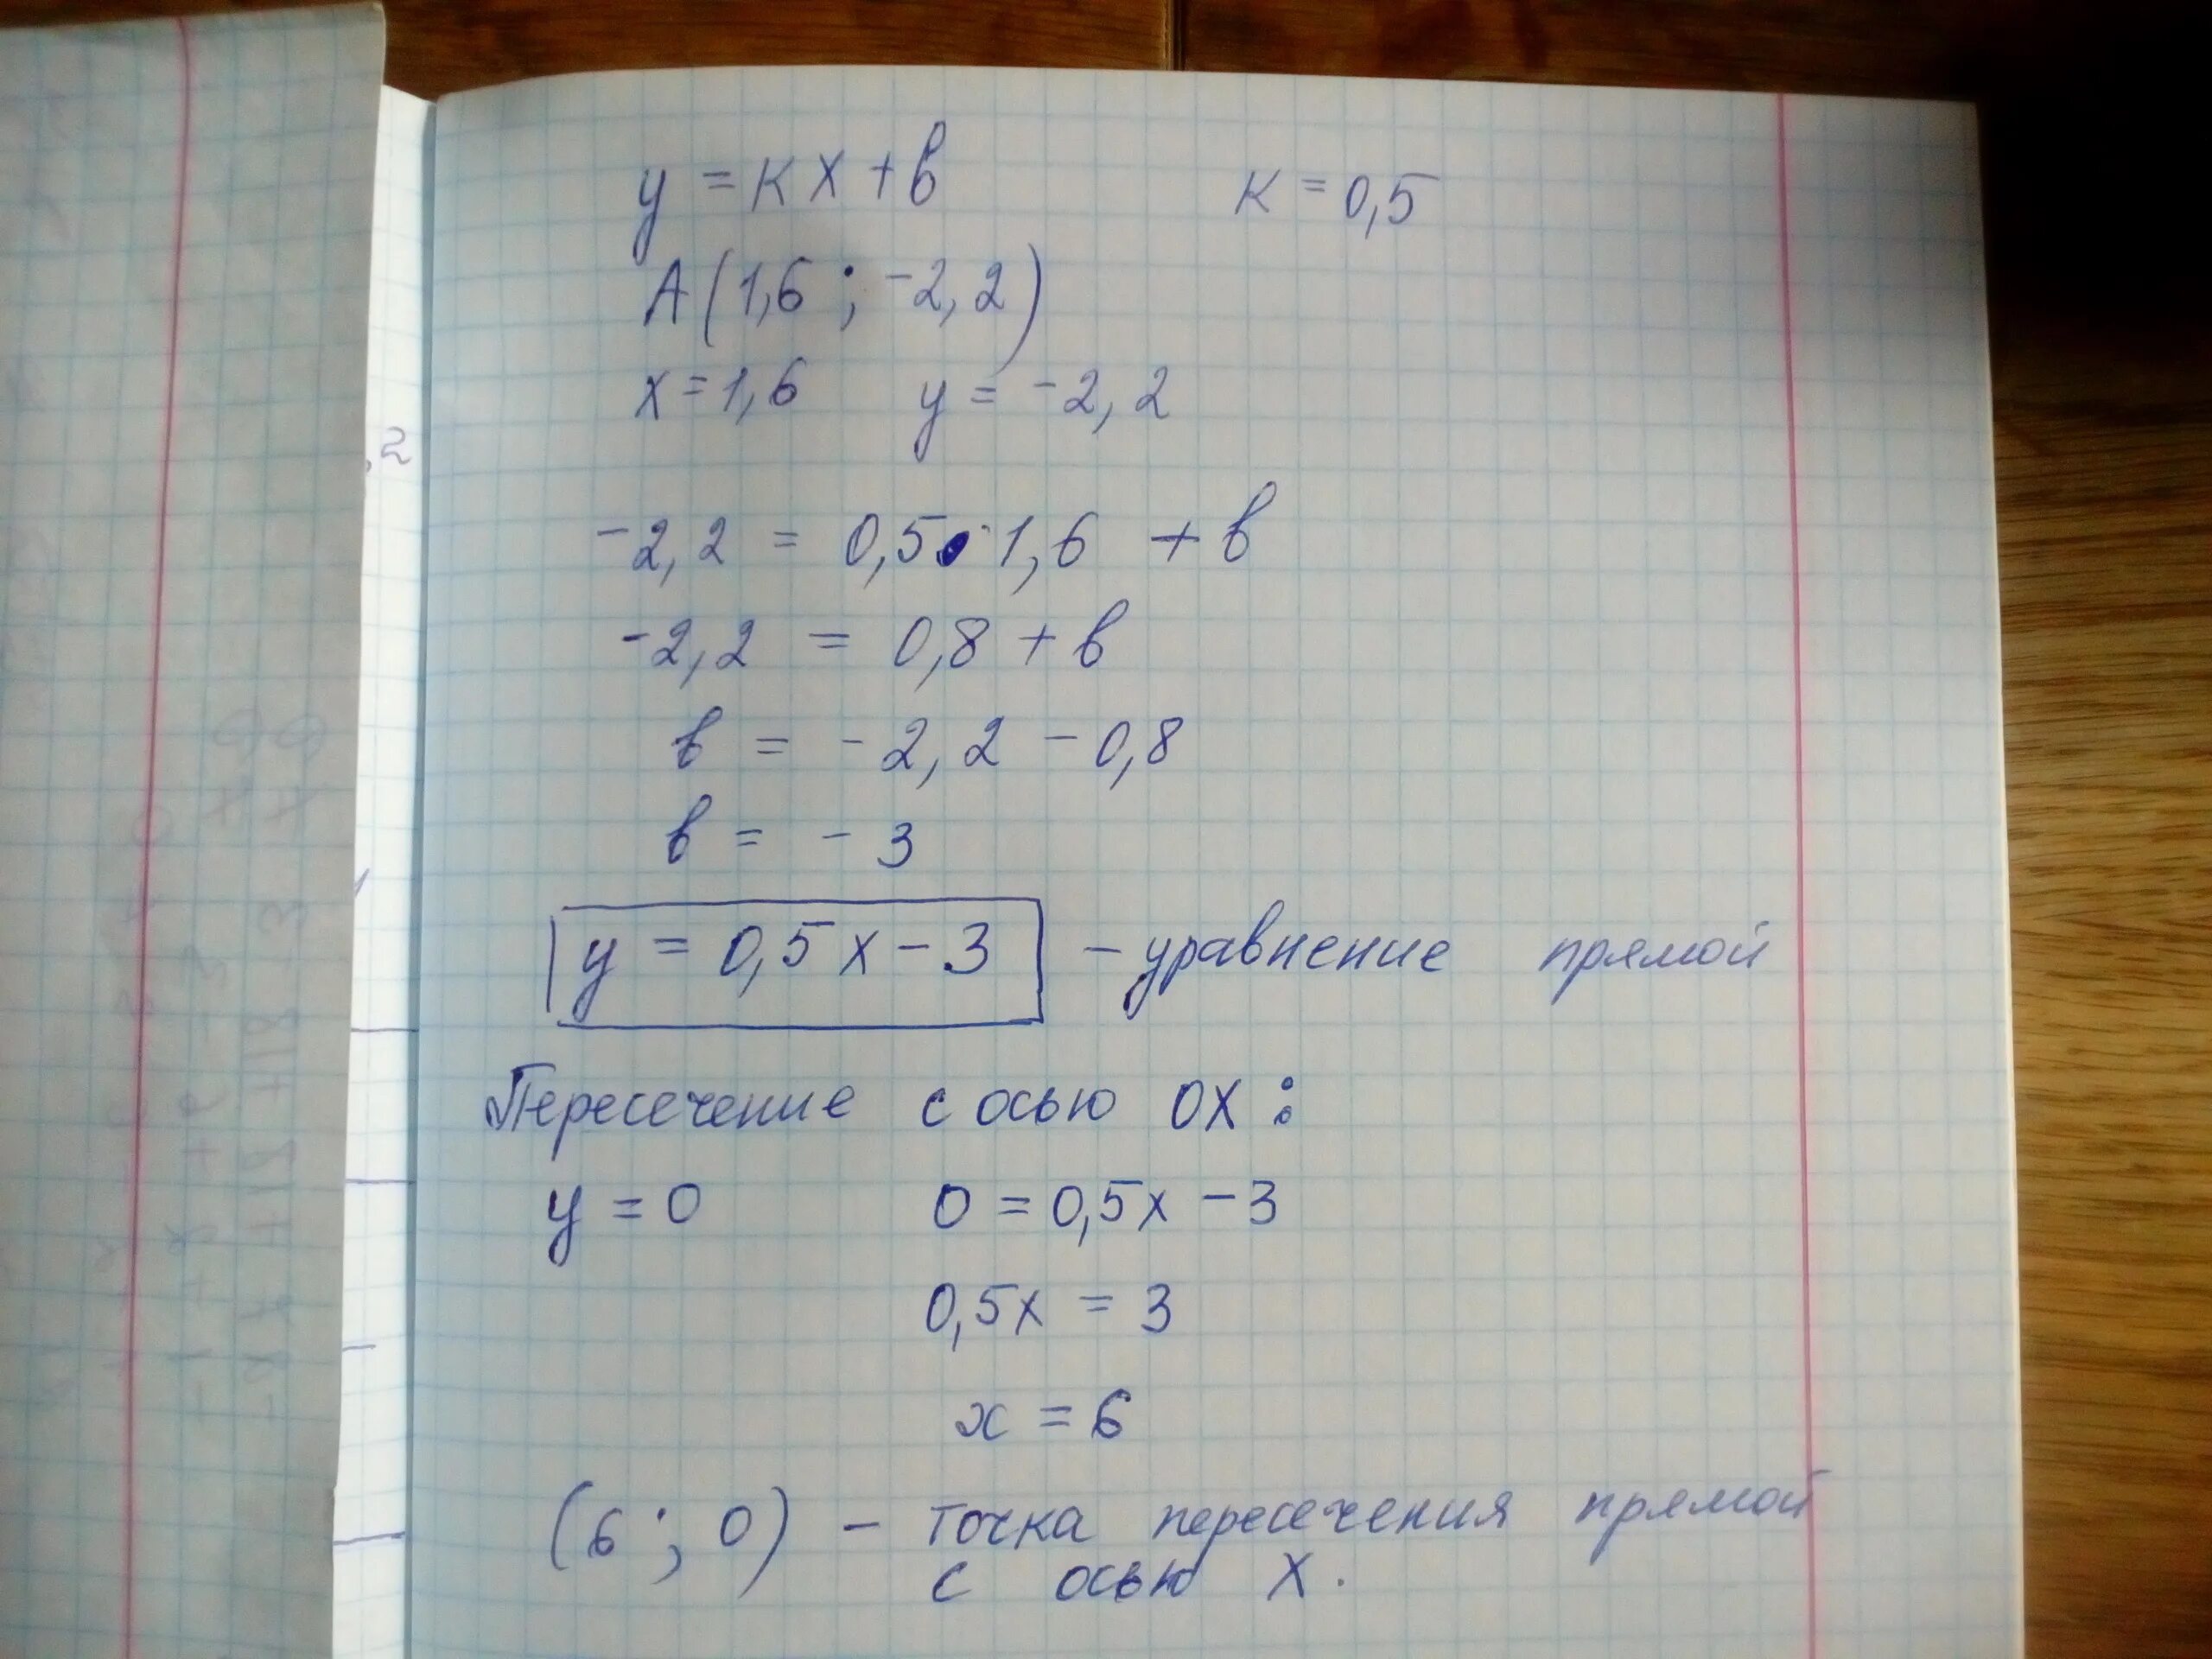 y = kx + b k = 0,5
A(1,6 ; -2,2)
x = 1,6 y = -2,2
-2,2 = 0,5 · 1,6 + b
-2,2 = 0,8 + b
b = -2,2 - 0,8
b = -3
y = 0,5x - 3 - уравнение прямой
Пересечение с осью OX:
y = 0 0 = 0,5x - 3
0,5x = 3
x = 6
(6 ; 0) - точка пересечения прямой
с осью X.